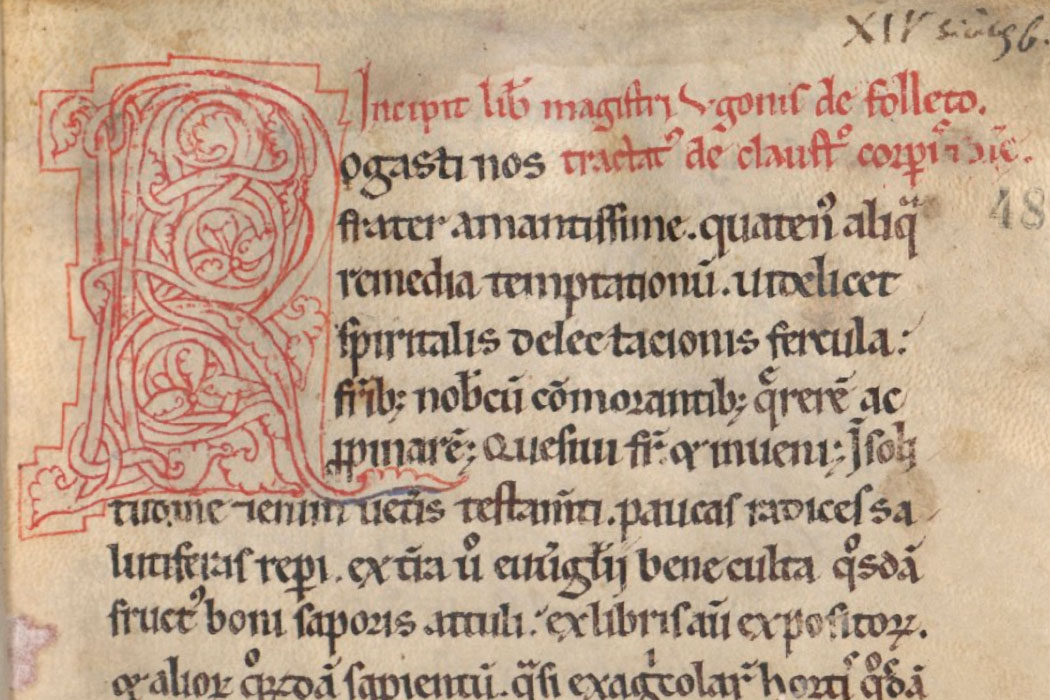 XIV
Incipit lib̄ magistri Vgonis de folleto.
Rogasti nos tractat᷒ de claustr̊ corp̄
48
frater amantissime. quaten᷒ aliq̄
remedia temptationū. uidelicet
spiritalis delectacionis fercula:
fr̄ib; nob̄cū cōmorantib; q̄rerē ac
ꝓpinarē; Quesiui fr̄ & inueni; J̄ soli
ueťis testam̄ti. paucas radices sa
lutiferas rep̄i. ex t̄ra ů euu̅gl̄ij bene culta q̊sdā
fruct᷒ boni saporis attuli. ex libris aū expositoꝝ.
& alioꝝ sapientū. q̄si